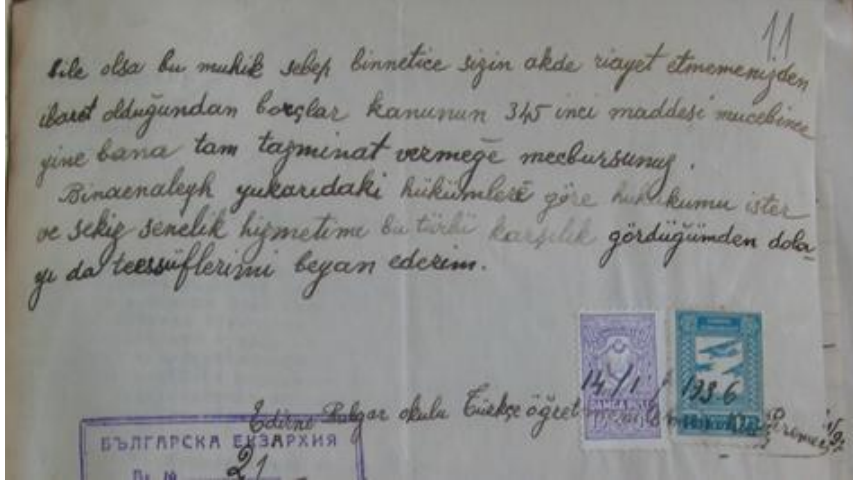 11
bile olsa bu muhik sebep binnetice sizin akde riayet etmemenizden
ibaret olduğundan borçlar kanunun 345 inci maddesi mucebince
yine bana tam tazminat vermeğe mecbursunuz.
Binaenaleyh yukarıdaki hükümlere göre hukukumu ister
ve sekiz senelik hizmetime bu türlü karşılık gördüğümden dola-
yı da teessüflerimi beyan ederim.
14/1 1936
Edirne Bulgar okulu Türkçe öğret
БЪЛГАРСКА ЕКЗАРХИЯ
21